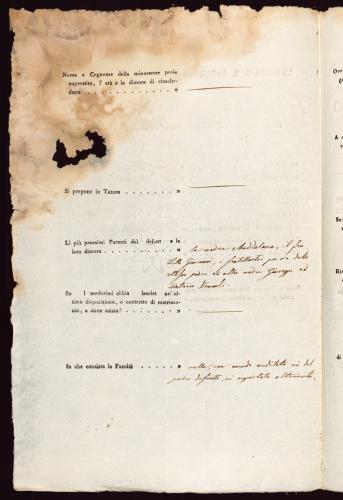 Nome e Cognome della minorenne prole
superstite, l' età e la dimora di ciasche-
duna . . . . . . . . . . . . . »
Si propone in Tutore . . . . . . . »
Li più prossimi Parenti del defont e la
loro dimora . . . . . . . . . . . »
la madre Maddalena, il fra
Giovanni, i fratellastri
stesso padre ed altra madre Giuseppe ed
Se I medesimi abbia lasciat un' ul-
tima disposizione, o contratto di matrimo-
nio, e dove esista? . . . . . . . . . »
In che consista la Facoltà . . . . . . »
nulla, non avendo ereditato nè del
padre defonto, nè acquistato